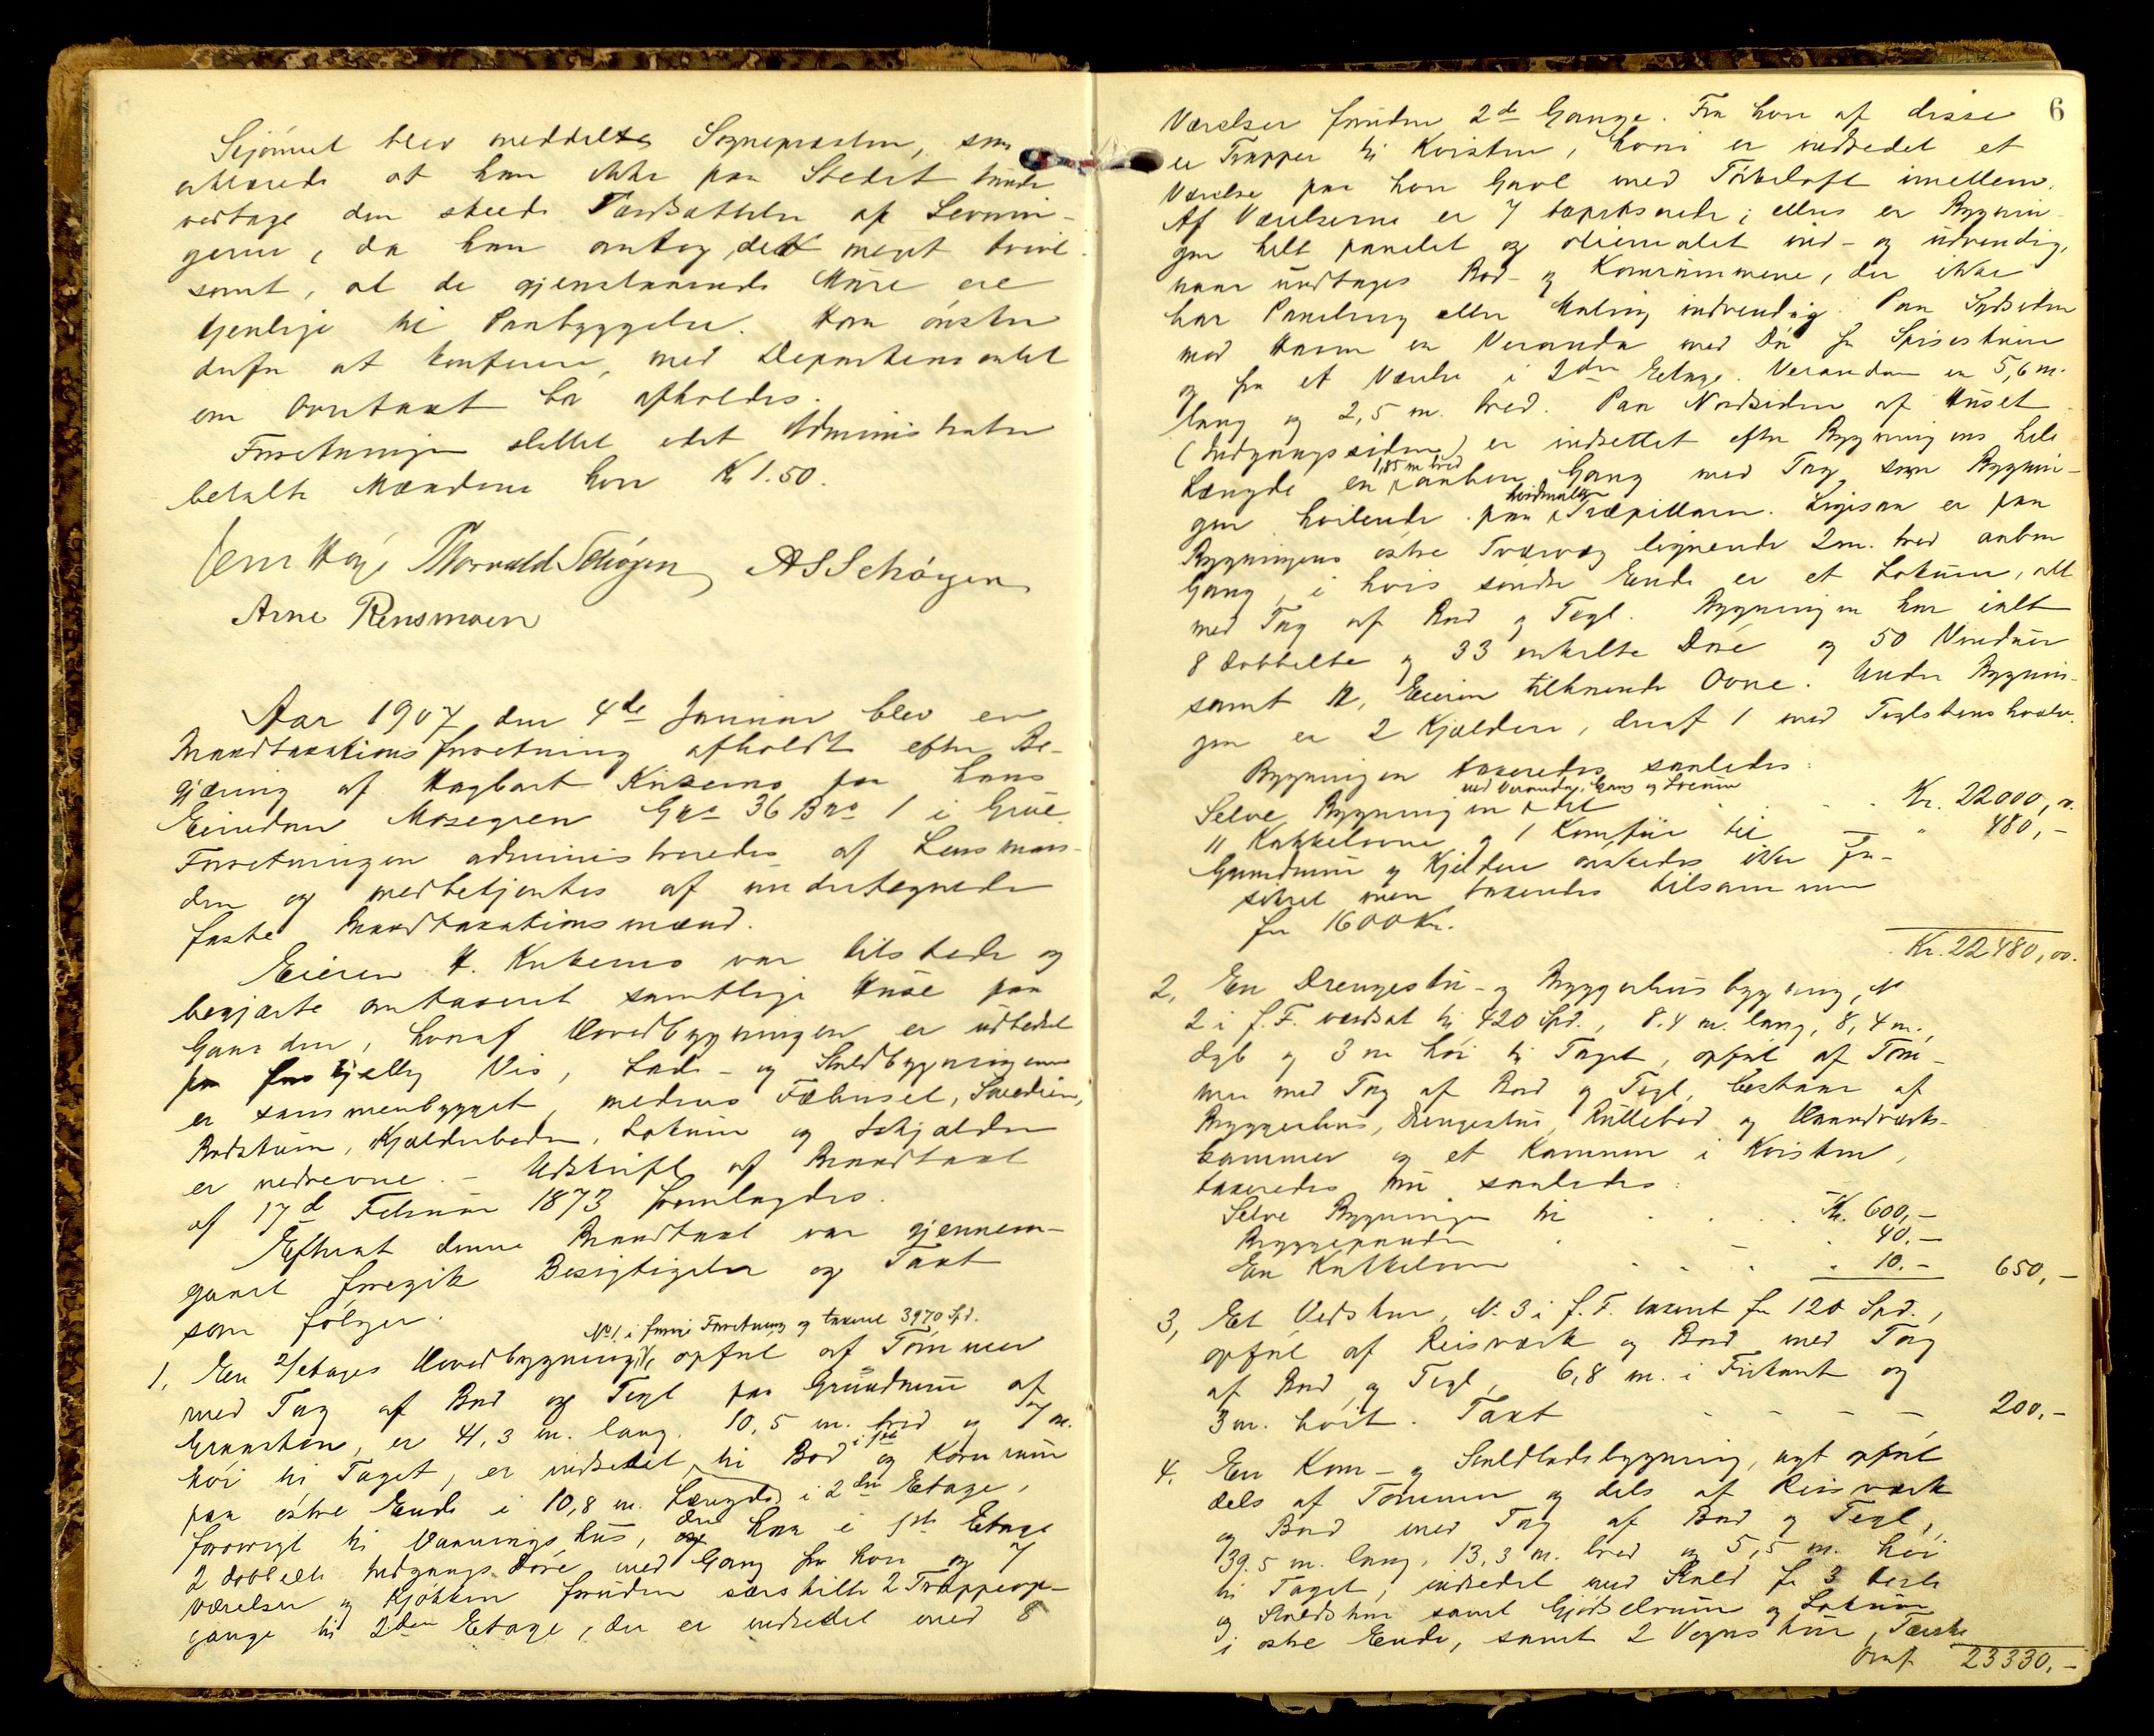 Skjønnet blev meddelt Sognepresten, som
erklærede at han ikke paa Stedet kunde
vedtage den skeede Værdsættelse af Levnin-
gerne, da han antog det meget tvivl-
somt, at de gjenstaaende Mure ere
tjenlige til Paabyggelse. Han ønsker
derfor at konferere med Departementet
om Overtaxt bør afholdes.
Forretningen sluttet idet Administrator
betalte Mændene hver Kr 1.50.
Jens Høye Thorvald Schøyen A S Schøyen
Arne Rensmoen
Aar 1907 den 4de Januar blev en
Brandtaxationsforretning afholdt efter Be-
gjæring af Hagbart Knkerno paa hans
Eiendom Mosegren Gno 36 Bno 1 i Grue.
Forretningen administreredes af Lensman-
den og medbetjentes af undertegnede
faste Brandtaxationsmænd.
Eieren H. Knkerno var tilstede og
begjærte omtaxeret samtlige Huse paa
Gaarden, hvoraf Hovedbygningen er udbedret
paa forskjellig Vis, Lade- og Staldbygningerne
er sammenbygget, medens Fæhuset, Smedien,
Badstuen, Kjælderboden, Lokum og Iskjælder
er nedrevne. – Udskrift af Brandtaxt
af 17d Februar 1873 fremlagdes.
Efterat denne Brandtaxt var gjennem-
gaaet foregik Besigtigelse og Taxt
som følger.
No 1. i forrige Forretning og taxeret 3970 Spd.
1. En 2/etages Hovedbygning, opført af Tømmer
med Tag af Bord og Tegl paa Grundmur af
Graasten, er 41,3 m. lang. 10,5 m. bred og 7 m.
høi til Taget, er indredet til Bod i 1ste og Kornrum
paa østre Ende i 10,8 m. Længde i 2den Etage,
forøvrigt til Vaaningshus, der har i 1ste Etage
2 dobbelte Indgangsdøre med Gang fra hver og 7
værelser og Kjøkken foruden særskilte 2 Trappeop-
gange til 2den Etage, der er indredet med 8
6
Værelser foruden 2de Gange. Fra hver af disse
er Trapper til Kvisten, hvori er indredet et
Værelse paa hver Gavl med Tørkeloft imellem.
Af Værelserne er 7 tapetserede; ellers er Bygnin-
gen helt panelet og oliemalet ind- og udvendig,
naar undtages Bod- og Kornrummene, der ikke
har Paneling eller Maling indvendig. Paa Sydsiden
mod Haven er Veranda med Dør fra Spisestuen
og fra et Værelse i 2den Etage. Verandaen er 5,6 m.
lang og 2,5 m. bred. Paa Nordsiden af Huset
(Indgangssiden) er indsettet efter Bygningens hele
Længde en 1,85 m bred aaben Gang med Tag som Bygnin-
gen hvilende paa hvidmalte Træpillarer. Ligesaa er paa
Bygningens østre Tværvæg lignende 2 m. bred aaben
Gang, i hvis søndre Ende er et Lokum, alt
med Tag af Bord og Tegl. Bygningen har ialt
8 dobbelte og 33 enkelte Døre og 50 Vinduer
samt 11, Eieren tilhørende Ovne. Under Bygnin-
gen er 2 Kjældere, deraf 1 med Teglstenshvælv.
Bygningen taxeredes saaledes:
Selve Bygningen med Veranda, Gang og Lokum til . . . Kr. 22000,00.
11 Kakkelovne og 1 Komfur til — " 480,–
Grundmur og Kjeldere ønskedes ikke for-
sikret men taxeredes tilsammen
for 1600 Kr.
Kr. 22480,00.
2, En Drengestu- og Bryggerhusbygning, N
2 i f. F. værdsat til 420 Spd., 8.4 m. lang, 8,4 m.
dyb og 3 m høi til Taget, opført af Tøm-
mer med Tag af Bord og Tegl, bestaar af
Bryggerhus, Drengestue, Rullebod og Haandværks-
kammer og et Kammer i Kvisten,
taxeredes nu saaledes:
Selve Bygningen til . . . Kr. 600,–
Bryggepanden . – . 40.–
En Kakkelovn . . . " 10.– 650,–
3, Et Vedskur, N. 3 i f. F. taxeret for 120 Spd.,
opført af Reisværk og Bord med Tag
af Bord og Tegl, 6,8 m. i Firkant og
3 m. høit. Taxt – – – – 200,–
4. En Korn- og Staldladebygning, nyt opført
dels af Tømmer og dels af Reisværk
og Bord med Tag af Bord og Tegl,
39.5 m. lang, 13,3 m. bred og 5,5 m. høi
til Taget, indredet med Stald for 3 Heste
og Staldskur samt Gjødselrum og Lokum
i østre Ende, samt 2 Vognskur, Tærske
Overf. 23330.–